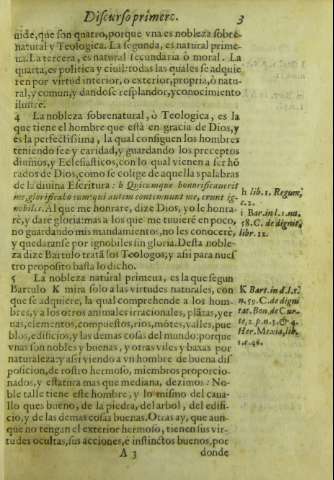 Discurso primero. 3
uide, que son quatro, porque vna es nobleza sobre-
natural y Teologica. La segunda, es natural prime-
ua. La tercera, es natural secundaria o moral. La
quarta, es politica y ciuil: todas las quales se adquie
ren por virtud interior, o exterior, propria, o natu-
ral, y comun, y dandose resplandor, y conocimiento
ilustre.
4 La nobleza sobrenatural, ò Teologica, es la
que tiene el hombre que està en gracia de Dios, y
es la perfectissima, la qual consiguen los hombres
teniendo fee y caridad, y guardando los preceptos
diuinos, y Eclesiasticos, con lo qual vienen a ser hõ
rados de Dios, como se colige de aquellas palabras
de la diuina Escritura: h Quicumque honorificauerit
me, glorificabo eum: qui autem contemnunt me, erunt ig-
nobiles. Al que me honrare, dize Dios, yo le honra-
rè, y dare gloria: mas a los que me tuuierẽ en poco,
no guardando mis mandamientos, no les conocerè,
y quedaranse por ignobiles sin gloria. Desta noble-
za dize Bartulo trata los Teologos; y assi para nues
tro proposito basta lo dicho.
5 La nobleza natural primeua, es la que segun
Bartulo K mira solo a las virtudes naturales, con
que se adquiere, la qual comprehende a los hom-
bres, y a los otros animales irracionales, plãtas, yer
uas, elementos, compuestos, rios, mõtes, valles, pue
blos, edificios, y las demas cosas del mundo: porque
vnas son nobles y buenas, y otras viles y baxas por
naturaleza: y assi viendo a vn hombre de buena dis
posicion, de rostro hermoso, miembros proporcio-
nados, y estatura mas que mediana, dezimos: No-
ble talle tiene este hombre, y lo mismo del caua-
llo que es bueno, de la piedra, del arbol, del edifi-
cio, y de las demas cosas buenas. Otras ay, que aun-
que no tengan el exterior hermoso, tienen sus vir-
tudes ocultas, sus acciones, è instinctos buenos, por
A 3 donde
h lib. 1. Regum,
c. 2.
i Bar. in l. 1. nu.
58. C. de dignit.
libr. 12.
K Bart. in d. l. 1.
n. 59. C. de digni
tat.
Her. Mexia, lib.
1. c. 46.